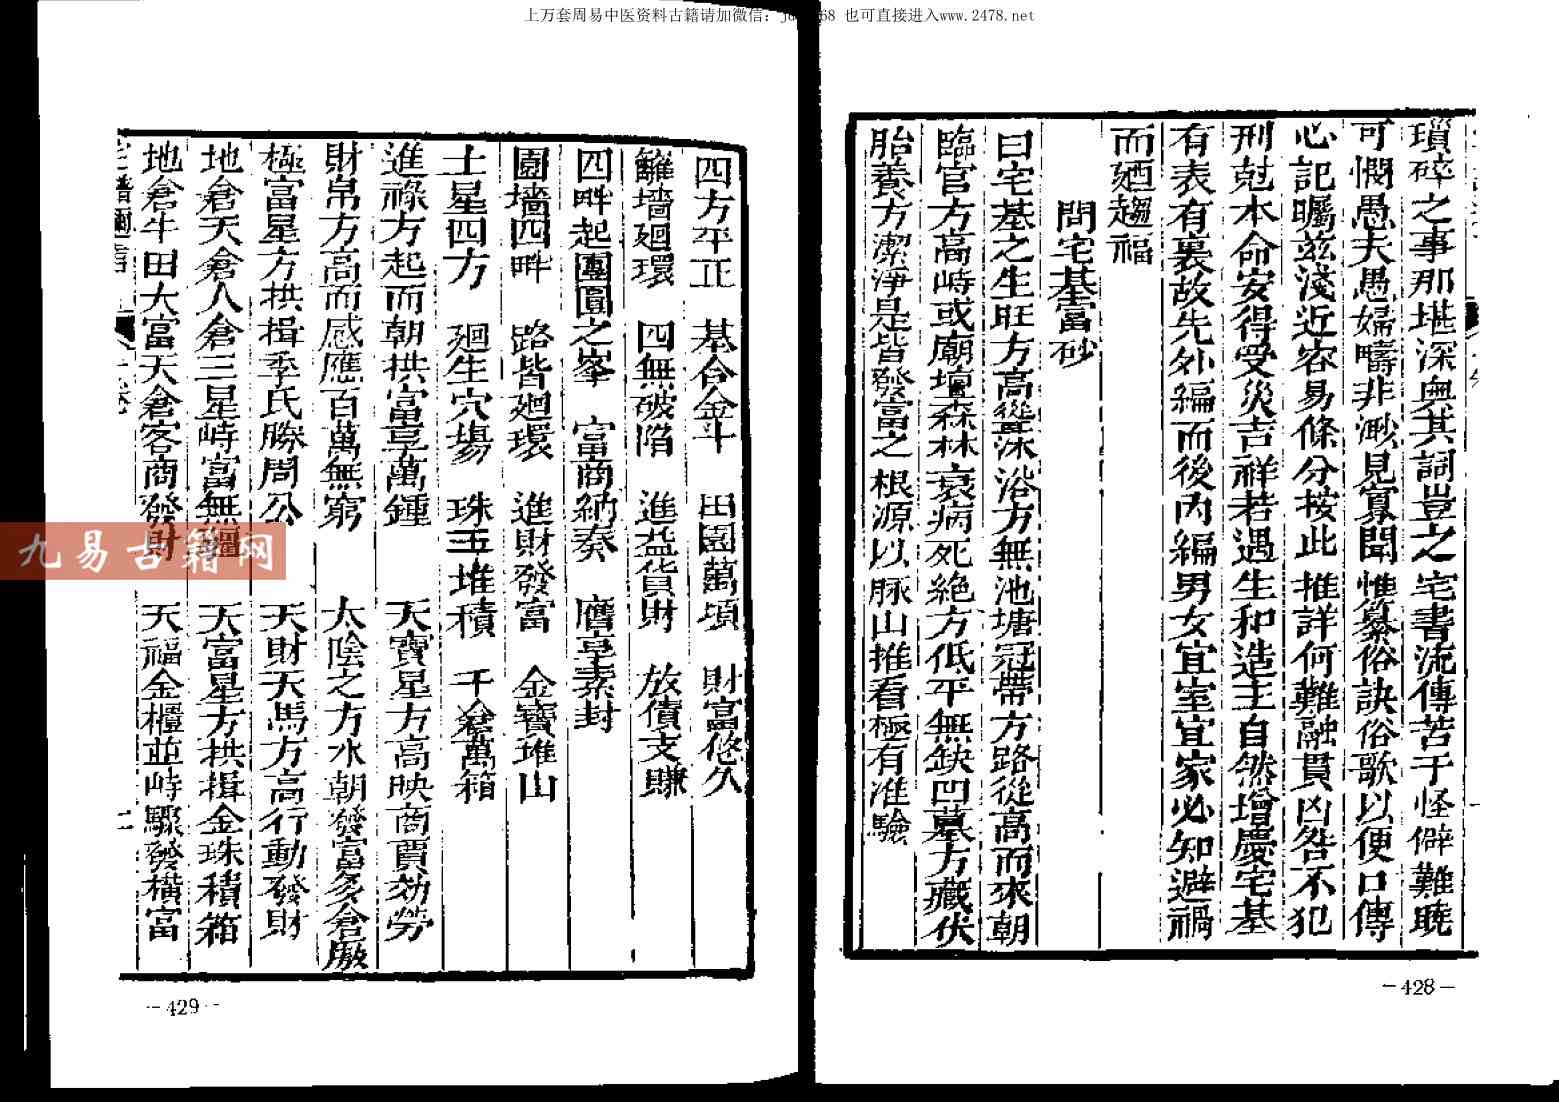 上万套周易中医资料古籍请加微信：
68 也可直接进入www.2478.net
瑣碎之事那堪深奥其詞豈之宅書流傳苦于怪僻難曉
可憫愚夫愚婦疇非渺見寡聞惟纂俗訣俗歌以便口傳
心記矚兹淺近容易條分按此推詳何難融貫凶咎不犯
刑尅本命安得受災吉祥若遇生和造主自然增慶宅基
有表有裏故先外編而後内編男女宜室宜家必知避禍
而廼趨福
問宅基富砂
曰宅基之生旺方高聳沐浴方無池塘冠帶方路從高而來朝
臨官方高峙或廟壇森林衰病死絶方低平無缺凹墓方藏伏
胎養方潔淨是皆發富之根源以脉山推看極有准驗
—428—
四方平正 基合金斗 田園萬頃 財富悠久
籬墻廻環 四無破陷 進益貨財 放債支賺
四畔起團圓之峯 富商納奏 膺享素封
園墻四畔 路皆廻環 進財發富 金寶堆山
土星四方 廻生穴場 珠玉堆積 千倉萬箱
進祿方起而朝拱富享萬鍾 天寶星方高映商賈効勞
財帛方高而感應百萬無窮 太陰之方水朝發富多倉廒
極富星方拱揖季氏勝周公 天財天馬方高行動發財
地倉天倉人倉三星峙富無疆 天富星方拱揖金珠積箱
地倉牛田大富天倉客商發財 天福金櫃並峙驟發橫富
—429—
九易古籍网